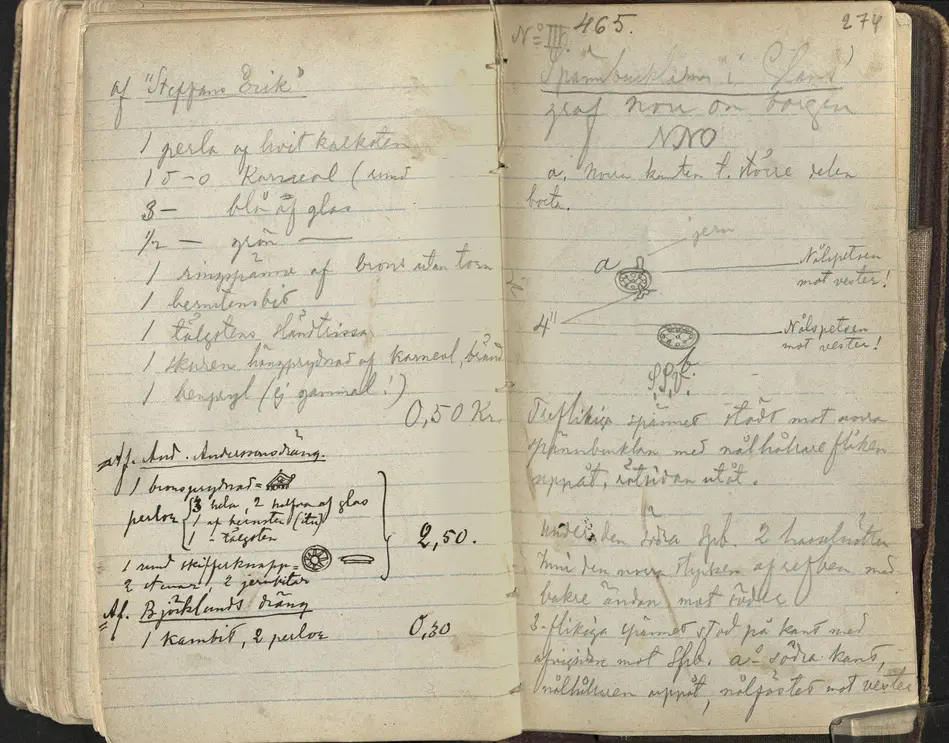 af "Steffans Erik"
1 perla af hvit kalksten
1 5-0 Karneol (rund
3 — blå af glas
1/2 — grön —
1 ringspänne af brons utan torn
1 bernstensbit
1 täljstens sländtrissa
1 skuren hängprydnad af karneol, bränd
1 benpryl (ej gammal!)
0,50 Kr.
Af. And. Anderssons dräng.
1 bronsprydnad =
perlor 3 hela, 2 halfva af glas
1 af bernsten (itu)
1 - täljsten
1 rund skifferknapp =
2,50.
2 , 2 jernbitar
Af. Björklunds dräng
1 kambit, 2 perlor
0,30
No III. 465.
274
Spännbucklorna i
graf norr om borgen
NNO
a, norra kanten t. större delen
borta.
jern
a
Nålspetsen
mot vester!
4"
Nålspetsen
mot vester!
b.
S.S.V.
Treflikiga spännet stödt mot norra
spännbucklan med nålhållare fliken
uppåt, rätsidan utåt.
Under den södra Spb. 2 hasselnötter
Inni den norra stycken af refben med
bakre ändan mot söder
3-flikiga spännet stod på kant med
afvigsidan mot Spb. a:s södra kant,
nålhållaren uppåt, nålfästet mot vester